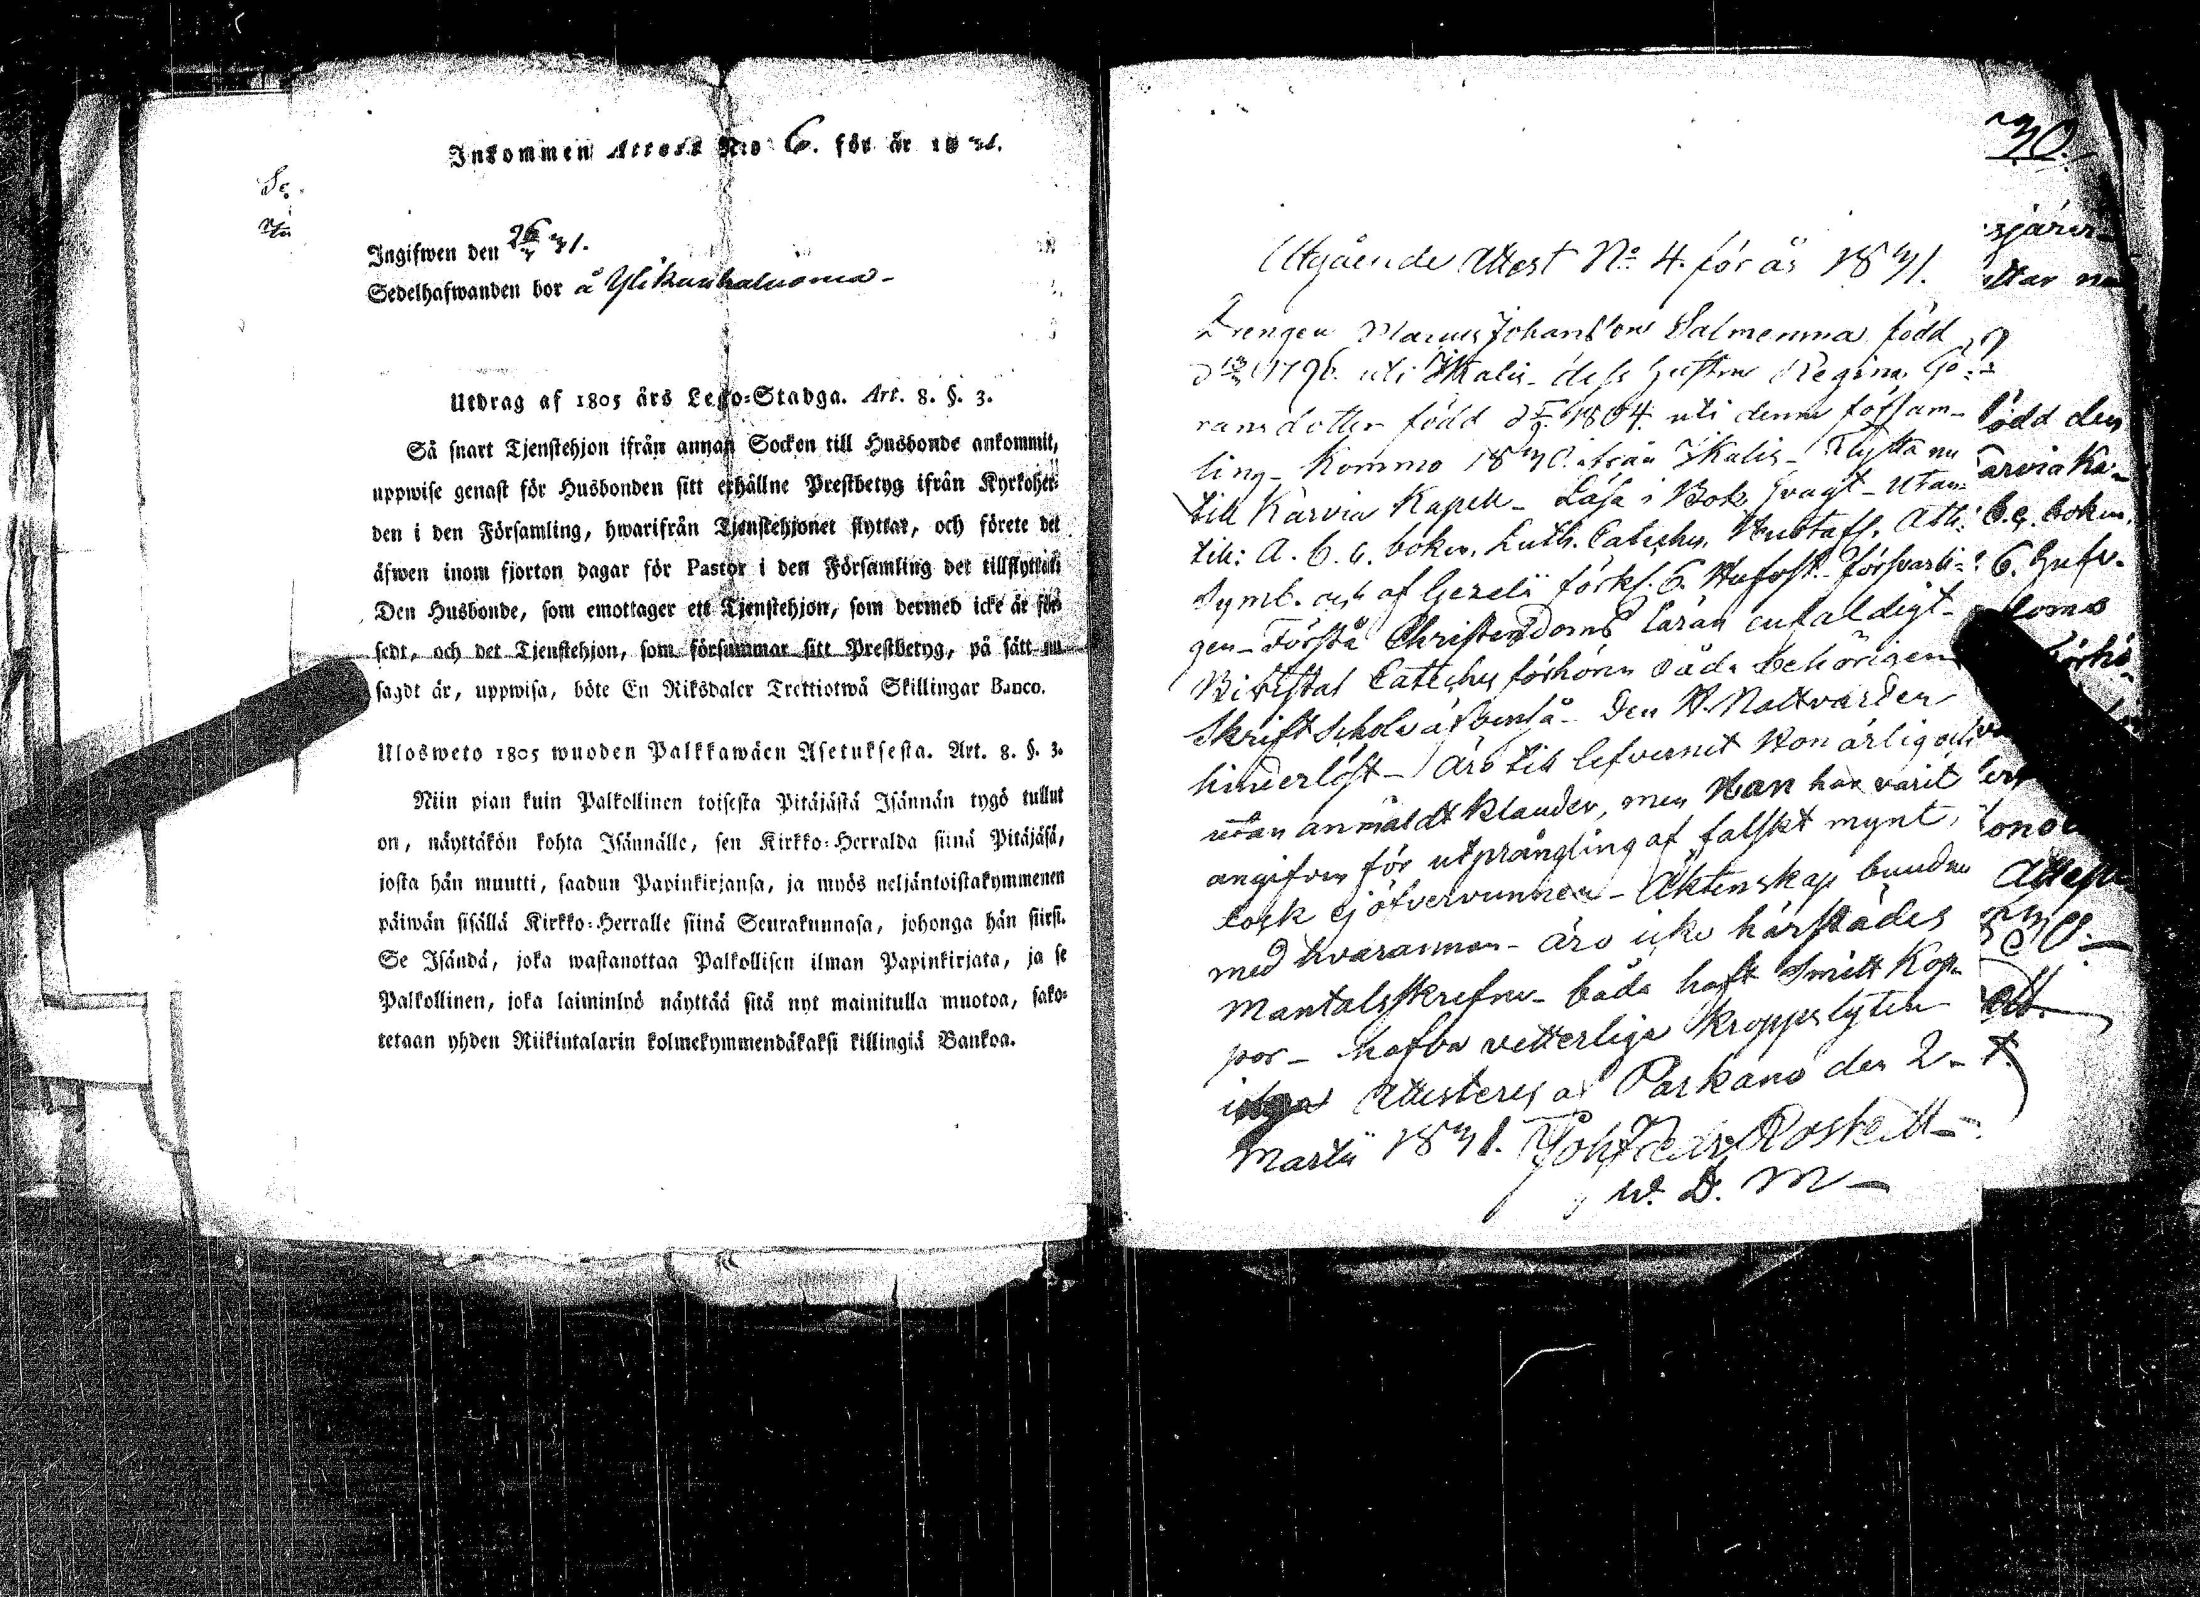 Inkommen Attest N:o 6. för år 1831.
Ingifwen den 26 31.
Sedelhafwanden bor å Ylikankaluoma
Utdrag af 1805 års Lego-Stadga. Art. 8. §. 3.
Så snart Tjenstehjon ifrån annan Socken till Husbonde ankommit,
uppwise genast för Husbonden sitt erhållne Prestbetyg ifrån Kyrkoher-
den i den Församling, hwarifrån Tjenstehjonet flyttat, och förete det
äfwen inom fjorton dagar för Pastor i den Församling det tillflyttat
Den Husbonde, som emottager ett Tjenstehjon, som dermed icke är för-
sedt, och det Tjenstehjon, som försummar sitt Prestbetyg, på sätt nu
sagdt är, uppwisa, böte En Riksdaler Trettiotwå Skillingar Banco.
Ulosweto 1805 wuoden Palkkawäen Asetuksesta. Art. 8. §. 3.
Niin pian kuin Palkollinen toisesta Pitäjästä Isännän tygö tullut
on, näyttäkön kohta Isännälle, sen Kirkko-Herralda siinä Pitäjäsä,
josta hän muutti, saadun Papinkirjansa, ja myös neljäntoistakymmenen
päiwän sisällä Kirkko-Herralle siinä Seurakunnasa, johonga hän siirsi.
Se Isändä, joka wastanottaa Palkollisen ilman Papinkirjata, ja se
Palkollinen, joka laiminlyö näyttää sitä nyt mainitulla muotoa, sako-
tetaan yhden Riikintalarin kolmekymmendäkaksi killingiä Bankoa.
Utgående Attest No 4. för år 1831.
Drengen Marcus Johansson Salmenmaa född
d 1796. uti Ikalis - dess hustru Regina Gö-
ransdotter född d 1804. uti denna försam-
ling - Kommo 1830 ifrån Ikalis - Flytta nu
till Karvia Kapell - Läsa i Bok svagt - Utan-
till: A. b. c. boken, Luth. Cateches, Hustafl. Ath.
Symb. och af Gezelii förkl. 6. Hufvst. försvarli-
gen - Förstå Christendoms läran enfaldigt -
Bivistat Cateches förhören båda behörigen
Skriftschola äfvenså - Den H. Nattvarden
hinderlöst - äro till lefvernet Hon ärlig och
utan anmäldt klander, men Han har varit
angifven för utprångling af falskt mynt,
dock ej öfvervunnen - Äktenskap bundna
med hvarannan - äro icke härstädes
Mantalsskrefne - båda haft Smitt Kop-
por - hafva vetterliga kroppslyten
inga Attesteres af Parkano den 2
Martii 1831. Joh Rostedt
W. D. M
30.
född den
Karvia Ka-
b. c. boken.
6. Hufv.